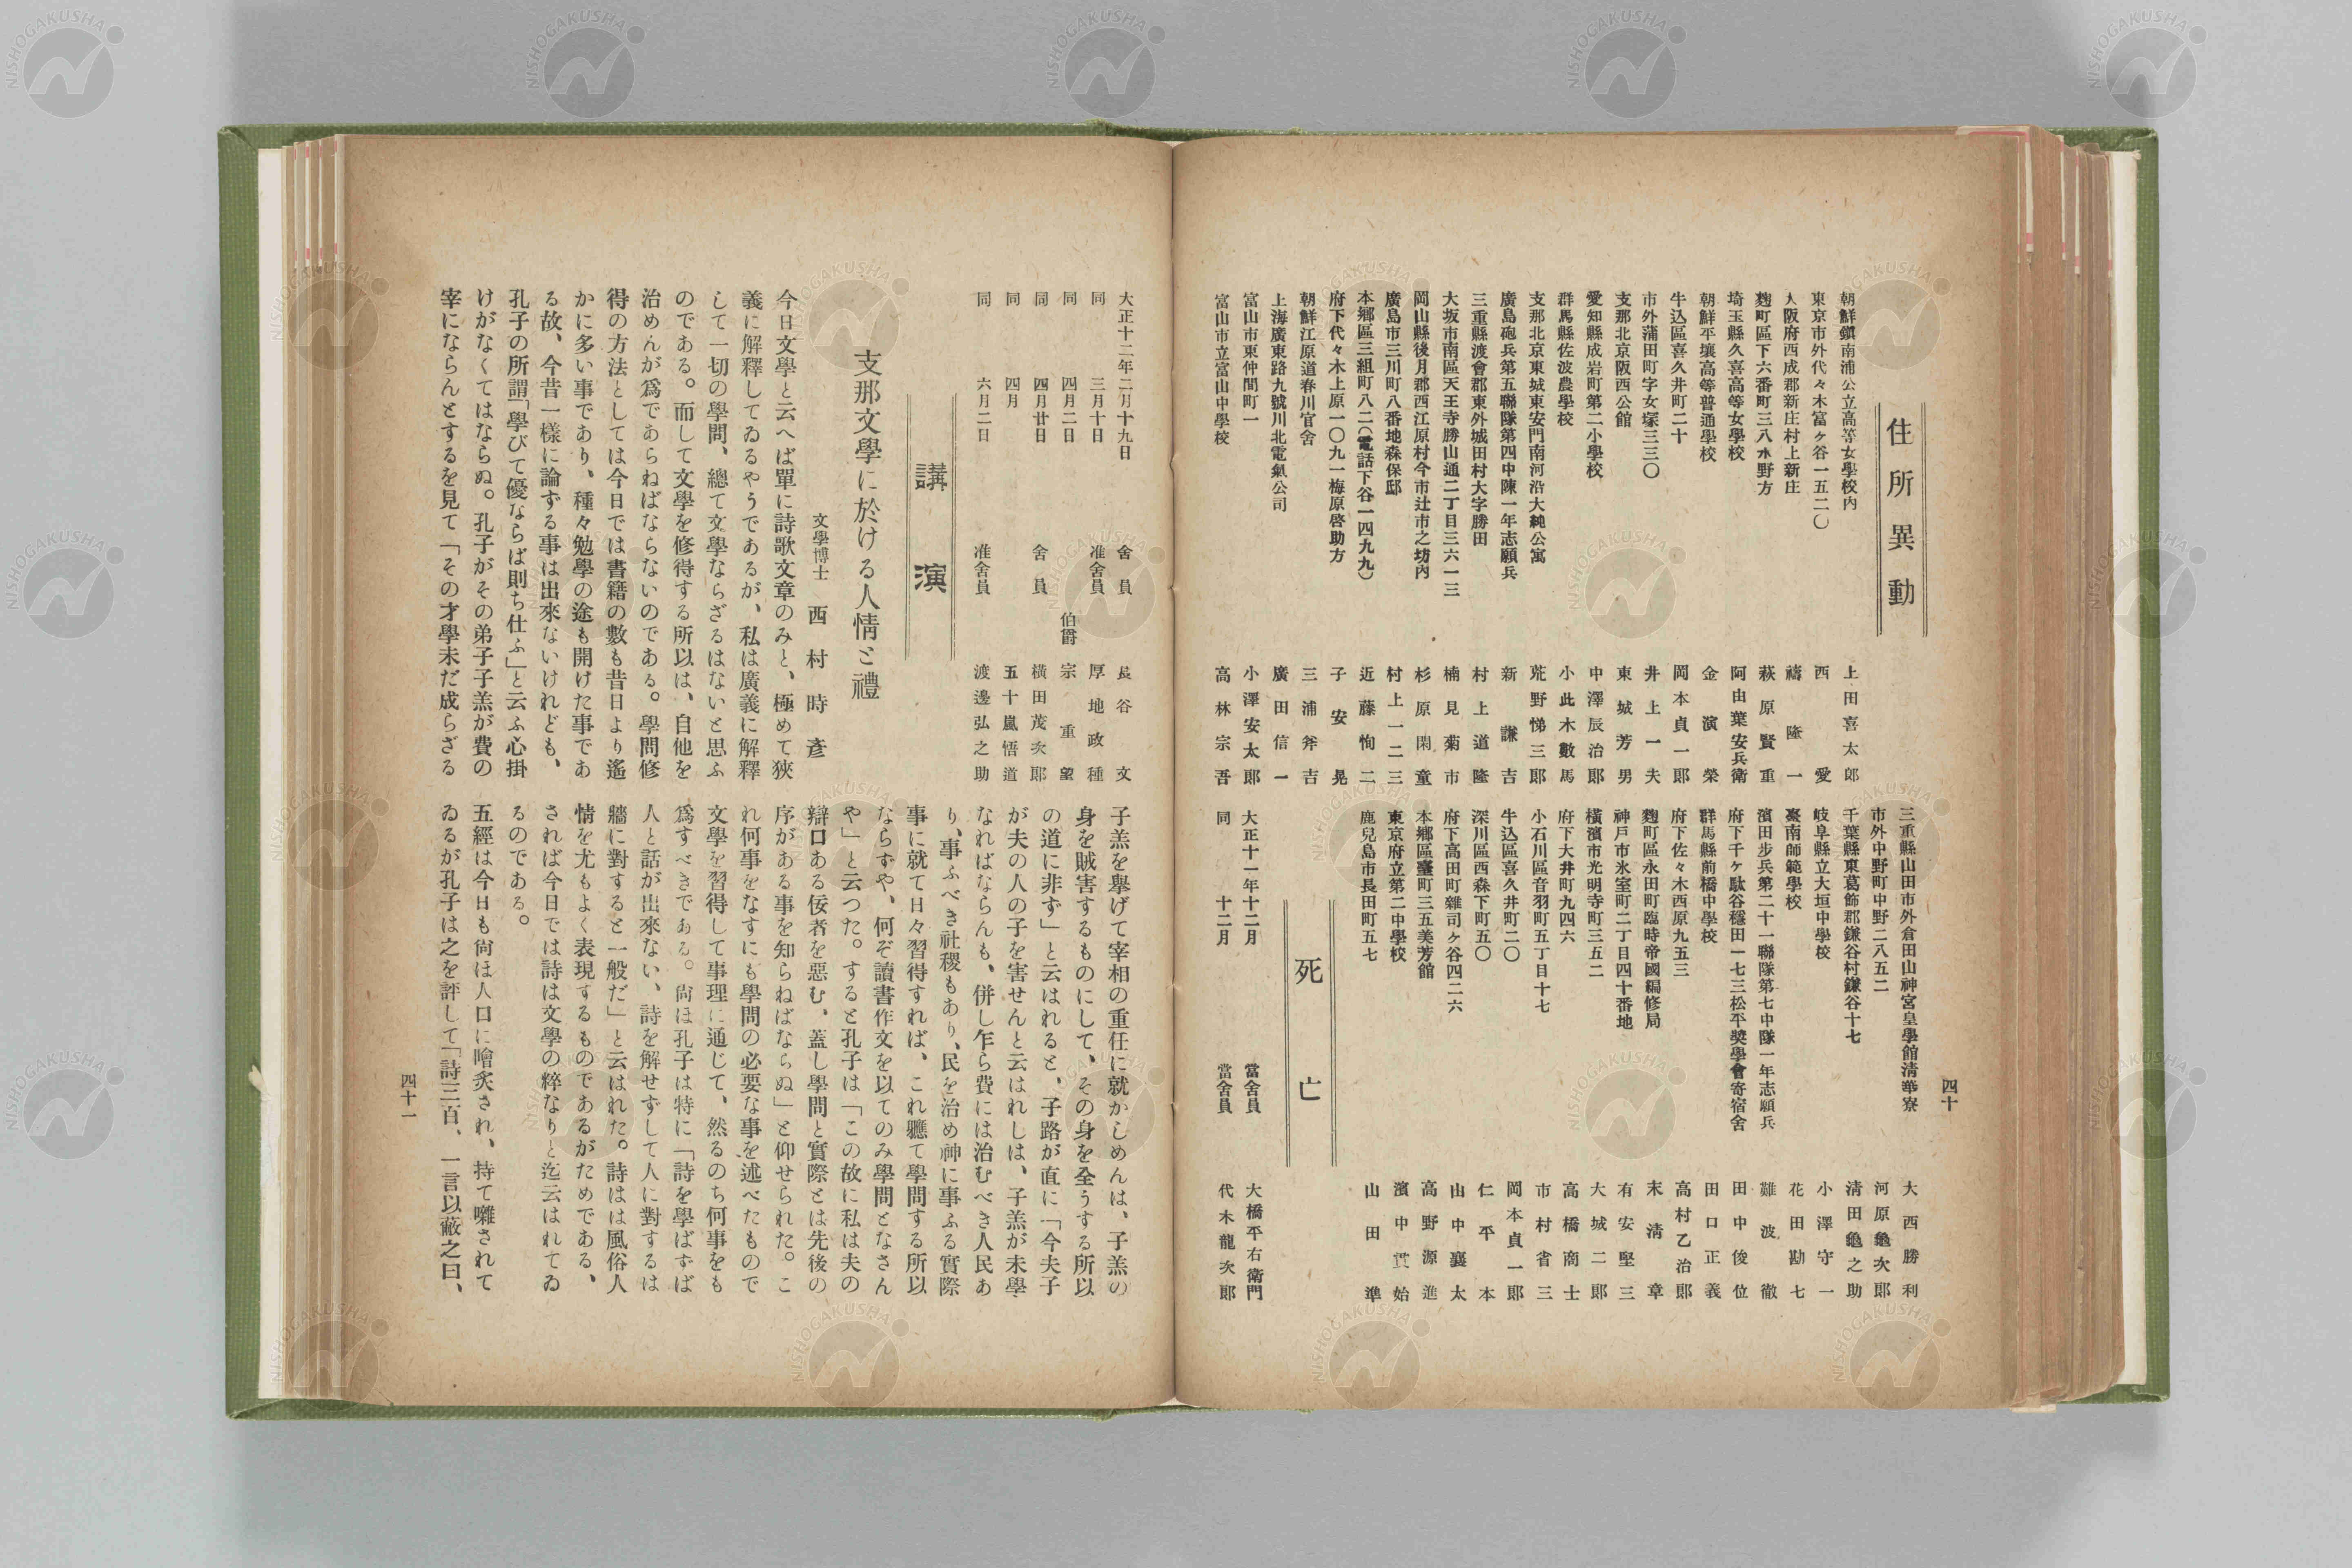 四十
住所異動
朝鮮鎭南浦公立高等女學校内 上田喜太郎
東京市外代々木富ヶ谷一五二〇 西愛
大阪府西成郡新庄村上新庄 禱隆一
麴町區下六番町三八水野方 萩原賢重
埼玉縣久喜高等女學校 阿由葉安兵衛
朝鮮平壤高等普通學校 金演榮
牛込區喜久井町二十 岡本貞一郎
市外蒲田町字女塚三三〇 井上一夫
支那北京阪西公館 東城芳男
愛知縣成岩町第二小學校 中澤辰治郎
群馬縣佐波農學校 小此木數馬
支那北京東城東安門南河沿大純公寓 荒野悌三郎
廣島砲兵第五聯隊第四中隊一年志願兵 新謙吉
三重縣渡會郡東外城田村大字勝田 村上道隆
大坂市南區天王寺勝山通二丁目三六一三 楠見菊市
岡山縣後月郡西江原村今市辻市之坊内 杉原閑童
廣島市三川町八番地森保邸 村上一二三
本鄕區三組町八二(電話下谷一四九九) 近藤恂二
府下代々木上原一〇九一梅原啓助方 子安晃
朝鮮江原道春川官舍 三浦斧吉
上海廣東路九號川北電氣公司 廣田信一
富山市東仲間町一 小澤安太郎
富山市立富山中學校 高林宗吾
三重縣山田市外倉田山神宮皇學館淸華寮 大西勝利
市外中野町中野二八五二 河原龜次郎
千葉縣東葛飾郡鎌谷村鎌谷十七 淸田龜之助
岐阜縣立大垣中學校 小澤守一
臺南師範學校 花田勘七
濱田步兵第二十一聯隊第七中隊一年志願兵 難波徹
府下千ヶ駄谷穩田一七三松平奬學會寄宿舍 田中俊位
群馬縣前橋中學校 田口正義
府下佐々木西原九五三 高村乙治郎
麴町區永田町臨時帝國編修局 末淸章
神戸市氷室町二丁目四十番地 有安堅三
橫濱市光明寺町三五二 大城二郎
府下大井町九四六 高橋商士
小石川區音羽町五丁目十七 市村省三
牛込區喜久井町二〇 岡本貞一郎
深川區西森下町五〇 仁平本
府下高田町雜司ヶ谷四二六 山中襄太
本鄕區臺町三五美芳館 高野源進
東京府立第二中學校 濱中貫始
鹿兒島市長田町五七 山田準
死亡
大正十一年十二月 當舍員 大橋平右衛門
同 十二月 當舍員 代木龍次郎
大正十二年二月十九日 舍員 長谷文
同 三月十日 准舍員 厚地政種
同 四月二日 伯爵 宗重望
同 四月廿日 舍員 橫田茂次郎
同 四月 五十嵐悟道
同 六月二日 准舍員 渡邊弘之助
講演
支那文學に於ける人情と禮
文學博士 西村時彥
今日文學と云へば單に詩歌文章のみと、極めて狹
義に解釋してゐるやうであるが、私は廣義に解釋
して一切の學問、總て文學ならざるはないと思ふ
のである。而して文學を修得する所以は、自他を
治めんが爲であらねばならないのである。學問修
得の方法としては今日では書籍の數も昔日より遙
かに多い事であり、種々勉學の途も開けた事であ
る故、今昔一樣に論ずる事は出來ないけれども、
孔子の所謂「學びて優ならば則ち仕ふ」と云ふ心掛
けがなくてはならぬ。孔子がその弟子子羔が費の
宰にならんとするを見て「その才學未だ成らざる
子羔を擧げて宰相の重任に就かしめんは、子羔の
身を賊害するものにして、その身を全うする所以
の道に非ず」と云はれると、子路が直に「今夫子
が夫の人の子を害せんと云はれしは、子羔が未學
なればならんも、併し乍ら費には治むべき人民あ
り、事ふべき社稷もあり、民を治め神に事ふる實際
事に就て日々習得すれば、これ軈て學問する所以
ならずや、何ぞ讀書作文を以てのみ學問となさん
や」と云つた。すると孔子は「この故に私は夫の
辯口ある佞者を惡む。蓋し學問と實際とは先後の
序がある事を知らねばならぬ」と仰せられた。こ
れ何事をなすにも學問の必要な事を述べたもので
文學を習得して事理に通じて、然るのち何事をも
爲すべきである。尙ほ孔子は特に「詩を學ばずば
人と話が出來ない、詩を解せずして人に對するは
牆に對すると一般だ」と云はれた。詩はは風俗人
情を尤もよく表現するものであるがためである、
されば今日では詩は文學の粹なりと迄云はれてゐ
るのである。
五經は今日も尙ほ人口に膾炙され、持て囃されて
ゐるが孔子は之を評して「詩三百、一言以蔽之曰、
四十一